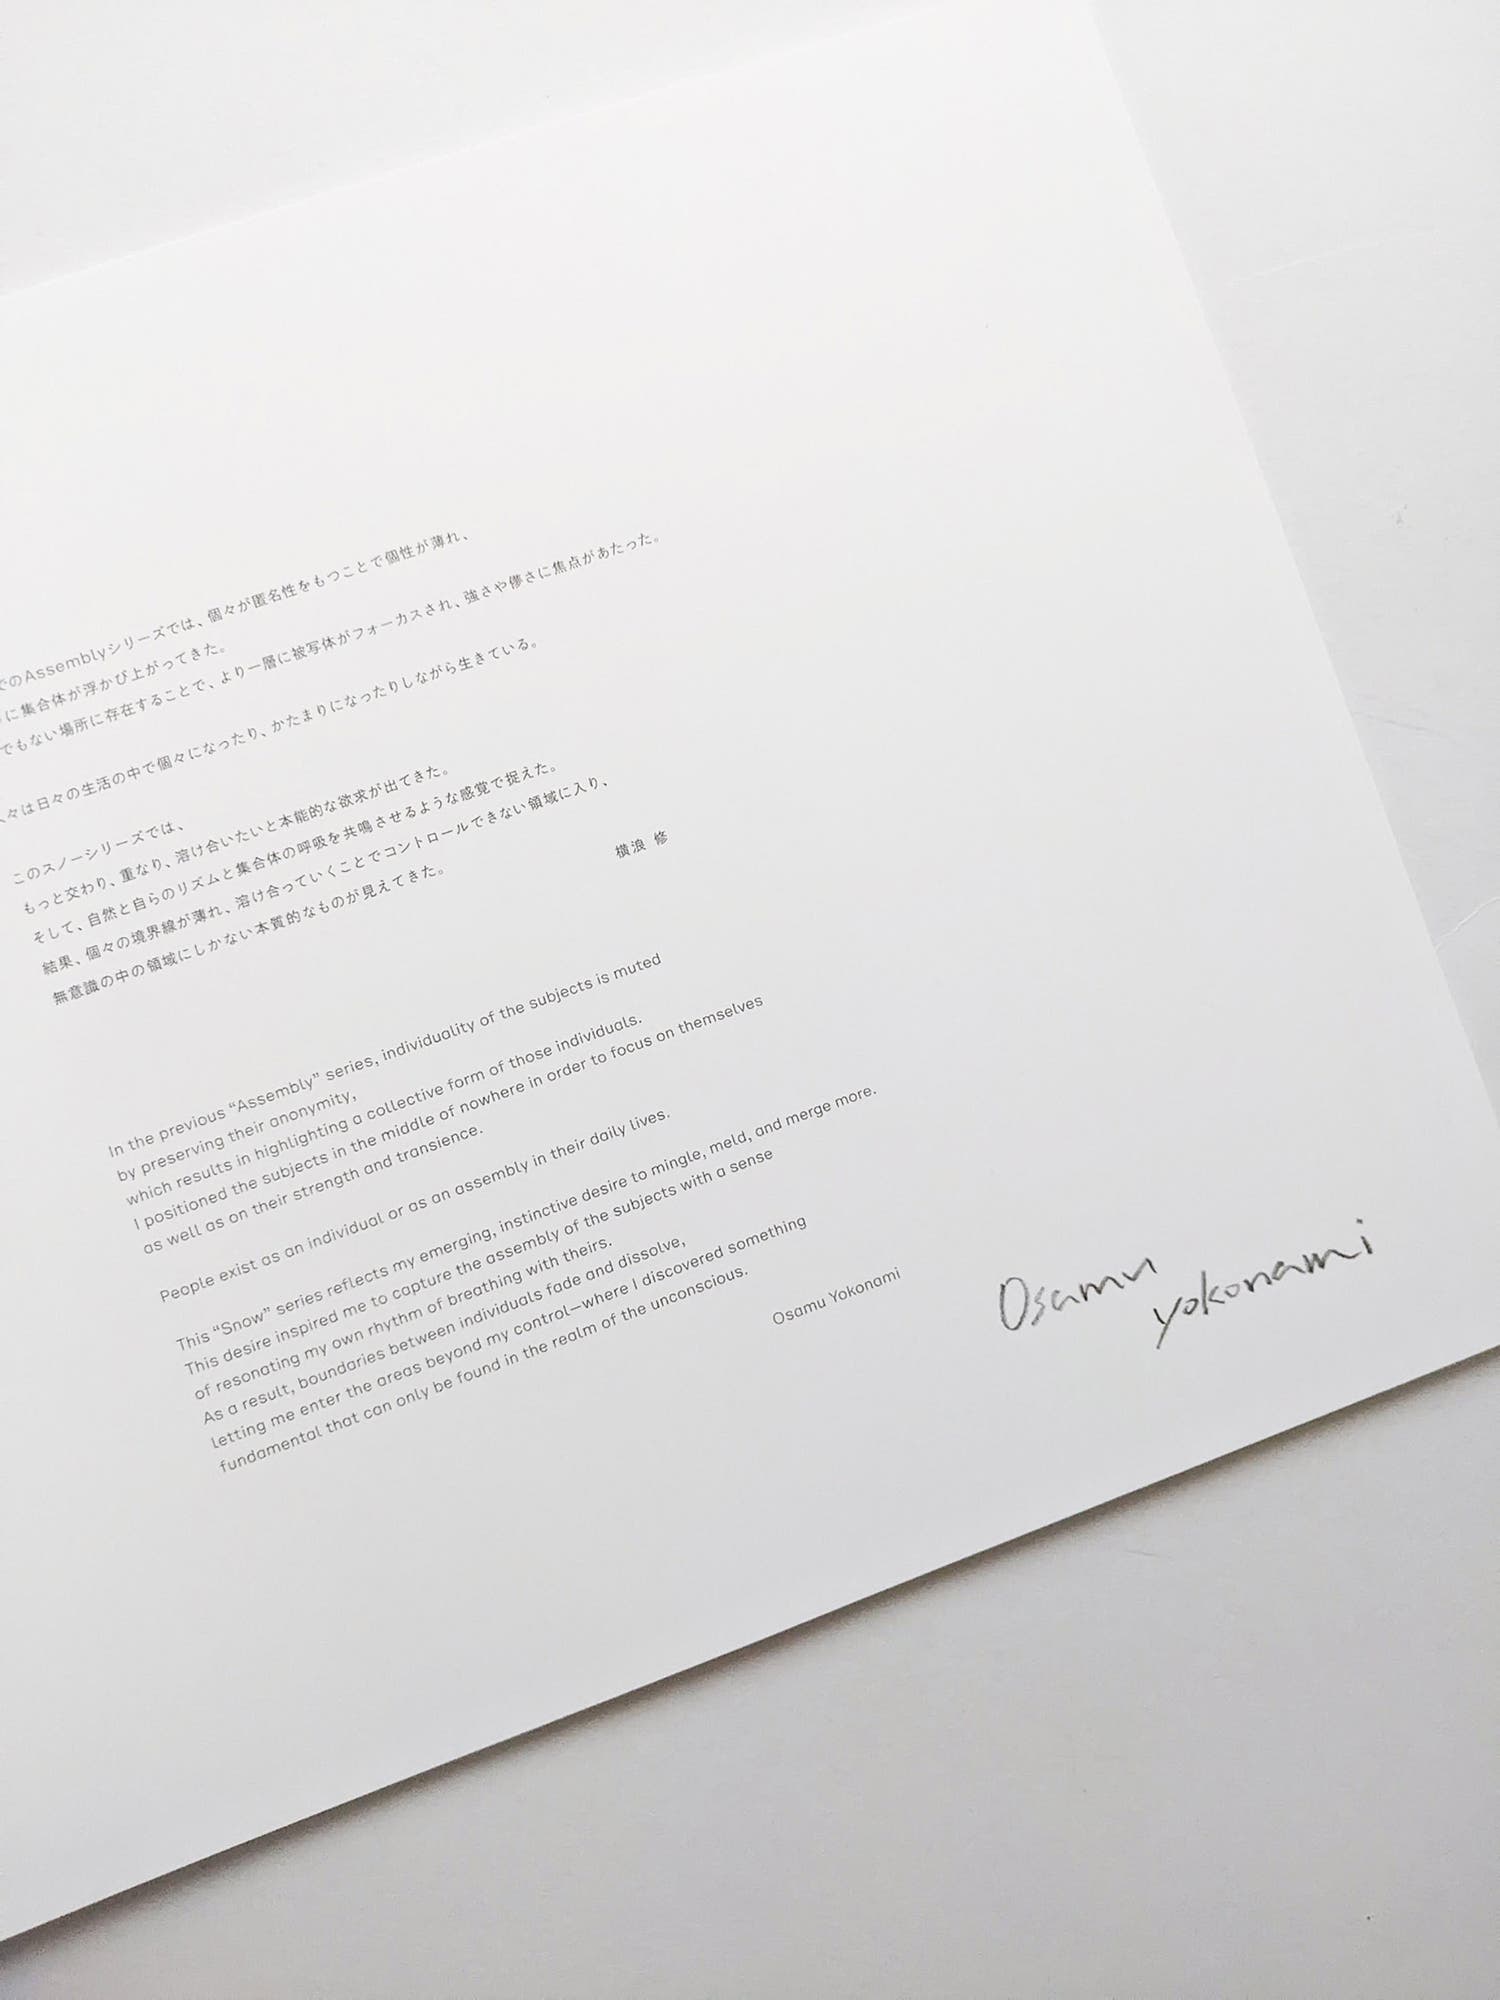 でのAssemblyシリーズでは、個々が匿名性をもつことで個性が薄れ、
に集合体が浮かび上がってきた。
でもない場所に存在することで、より一層に被写体がフォーカスされ、強さや儚さに焦点があたった。
人々は日々の生活の中で個々になったり、かたまりになったりしながら生きている。
このスノーシリーズでは、
もっと交わり、重なり、溶け合いたいと本能的な欲求が出てきた。
そして、自然と自らのリズムと集合体の呼吸を共鳴させるような感覚で捉えた。
結果、個々の境界線が薄れ、溶け合っていくことでコントロールできない領域に入り、
無意識の中の領域にしかない本質的なものが見えてきた。
横浪 修
In the previous “Assembly” series, individuality of the subjects is muted
by preserving their anonymity,
which results in highlighting a collective form of those individuals.
I positioned the subjects in the middle of nowhere in order to focus on themselves
as well as on their strength and transience.
People exist as an individual or as an assembly in their daily lives.
This “Snow” series reflects my emerging, instinctive desire to mingle, meld, and merge more.
This desire inspired me to capture the assembly of the subjects with a sense
of resonating my own rhythm of breathing with theirs.
As a result, boundaries between individuals fade and dissolve,
letting me enter the areas beyond my control—where I discovered something
fundamental that can only be found in the realm of the unconscious.
Osamu Yokonami
Osamu
yokonami